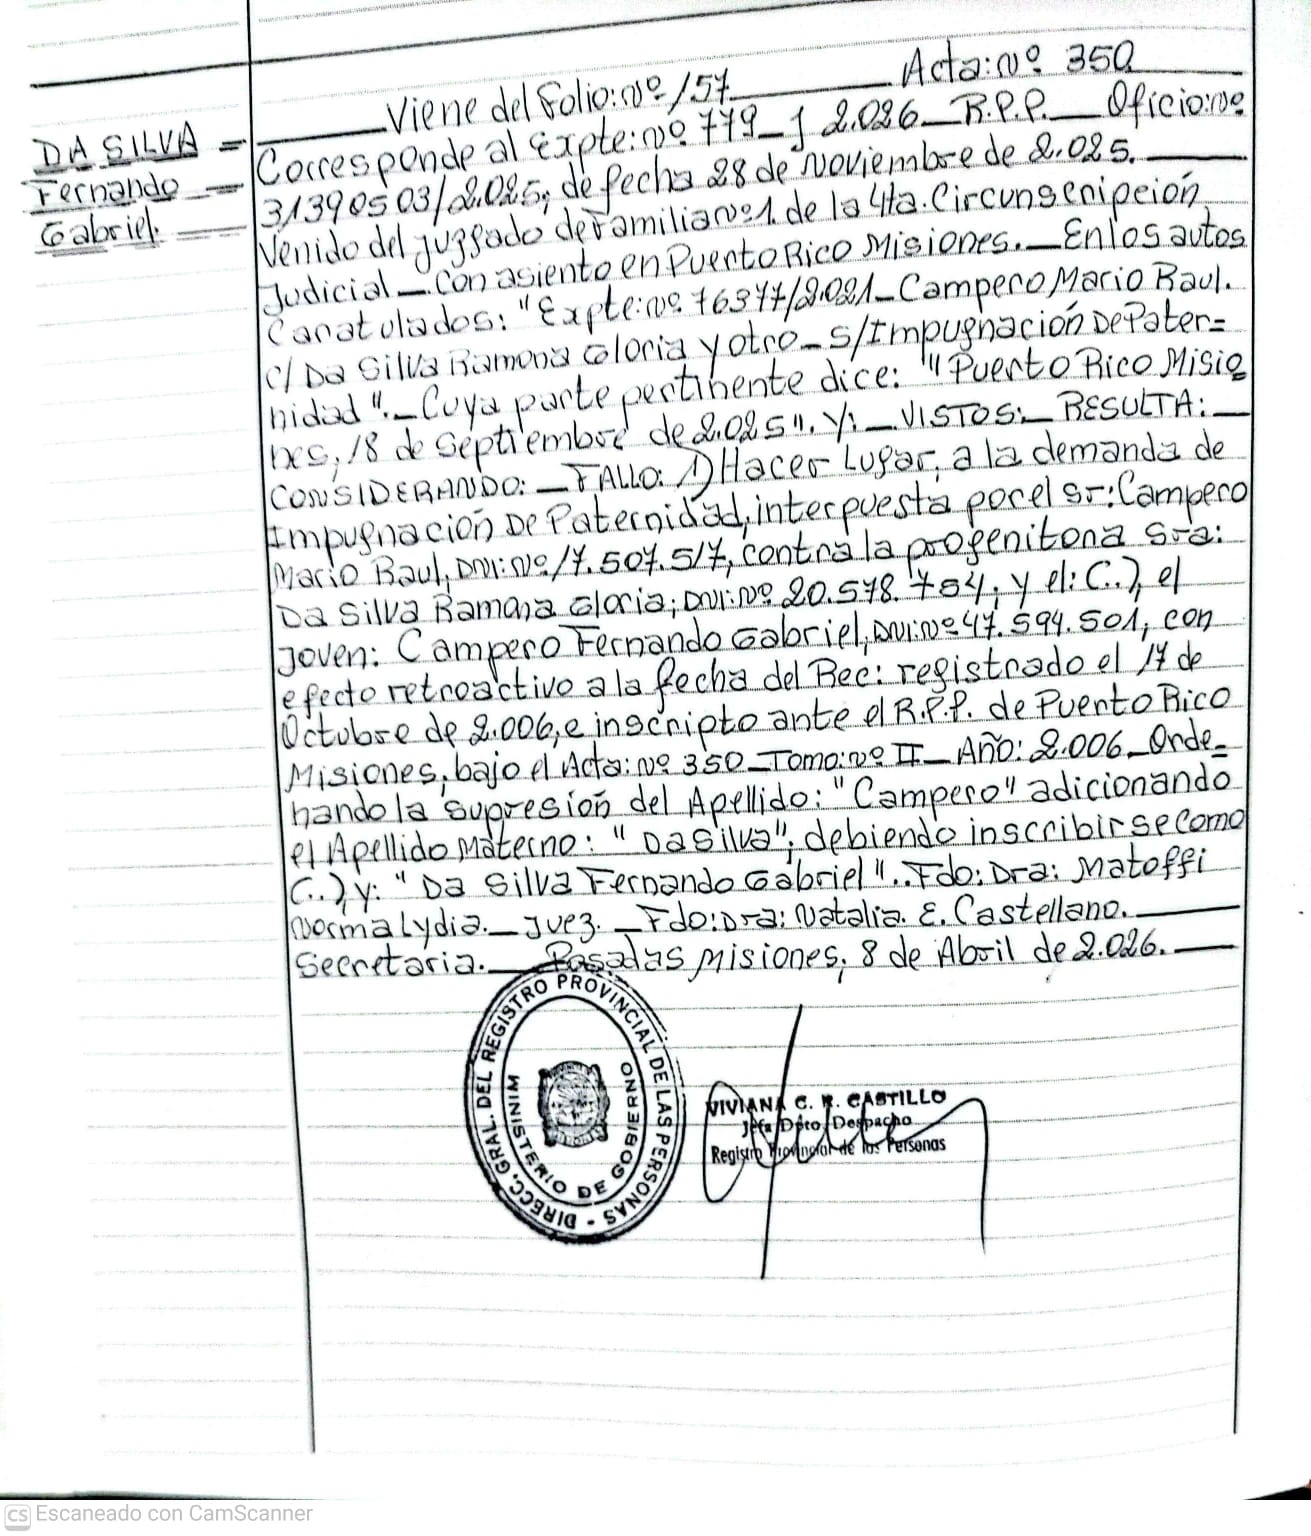 Viene del Folio: Nº 157 Acta: Nº 350
DA SILVA =
Fernando
Gabriel.
Corresponde al Expte: Nº 779_J 2.026_ R.P.P. _ Oficio: Nº
31390503/2.025; de fecha 28 de Noviembre de 2.025.
Venido del juzgado de Familia Nº 1. de la 4ta. Circunscripción
Judicial _. Con asiento en Puerto Rico Misiones. _ En los autos
Caratulados: "Expte: Nº 76377/2.021_ Campero Mario Raul.
c/ Da Silva Ramona Gloria y otro_ s/Impugnación De Pater=
nidad". _ Cuya parte pertinente dice: "Puerto Rico Misio
nes, 18 de Septiembre de 2.025". Y: _ VISTOS: _ RESULTA: _
CONSIDERANDO: _ FALLO: 1) Hacer Lugar, a la demanda de
Impugnación De Paternidad, interpuesta por el Sr: Campero
Mario Raul, DNI: Nº 17.507.517, contra la progenitora Sra:
Da Silva Ramona Gloria; DNI: Nº 20.578.754; y el: C..), el
joven: Campero Fernando Gabriel, DNI: Nº 47.594.501; con
efecto retroactivo a la fecha del Rec: registrado el 17 de
Octubre de 2.006, e inscripto ante el R.P.P. de Puerto Rico
Misiones, bajo el Acta: Nº 350_ Tomo: Nº II_ Año: 2.006_ Orde_
nando la supresión del Apellido: "Campero" adicionando
el Apellido Materno: "Da Silva"; debiendo inscribirse como
C..) y: "Da Silva Fernando Gabriel". . Fdo: Dra: Matoffi
Norma Lydia. _ Juez. _ Fdo: Dra: Natalia. E. Castellano.
Secretaria. _ Posadas Misiones, 8 de Abril de 2.026.
DIRECC. GRAL. DEL REGISTRO PROVINCIAL DE LAS PERSONAS -
MINISTERIO DE GOBIERNO
VIVIANA C. R. CASTILLO
Jefa Dpto. Despacho
Registro Provincial de las Personas
CS Escaneado con CamScanner